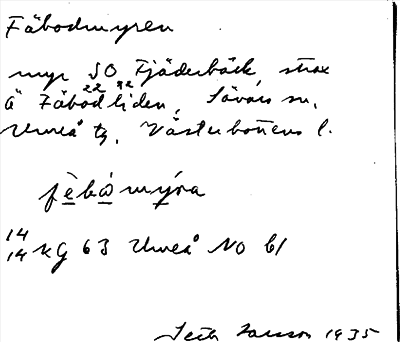 Fäbodmyren
myr SO Fjäderbäck, strax
å Fäbodliden, Sävars sn,
22 92
Umeå tg, Västerbottens l.
fèbòmýra
14
14 kg 63 Umeå NO bl
Larsson 1935